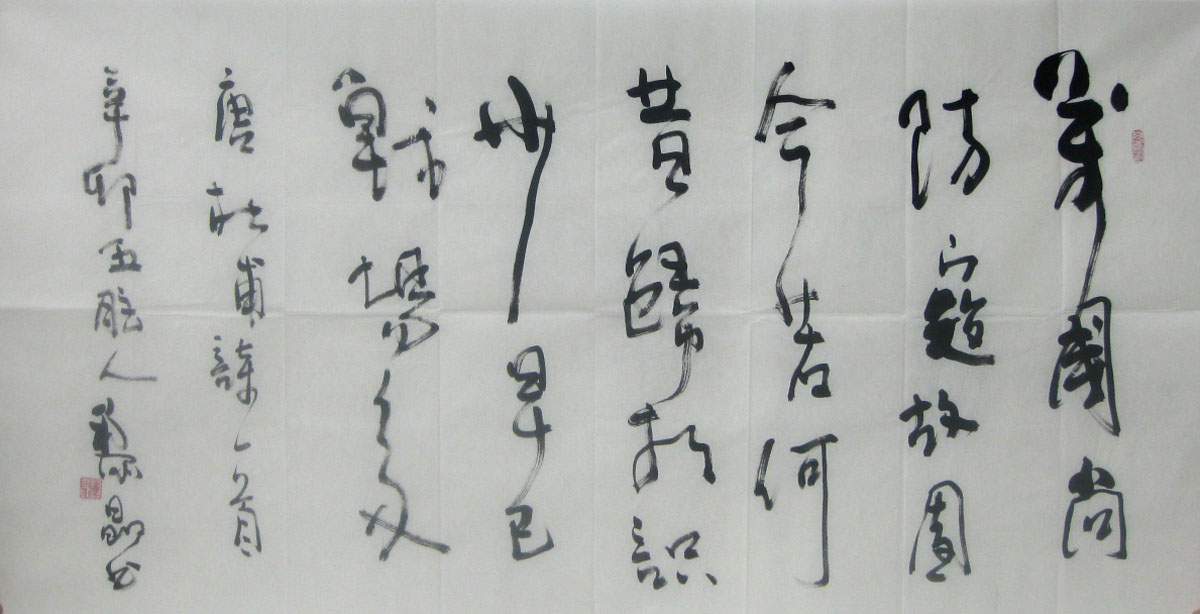 萬國尚
防寇故園
今若何
昔歸相識
少早已
戰場多
唐杜甫詩一首
辛卯五人黎晶书